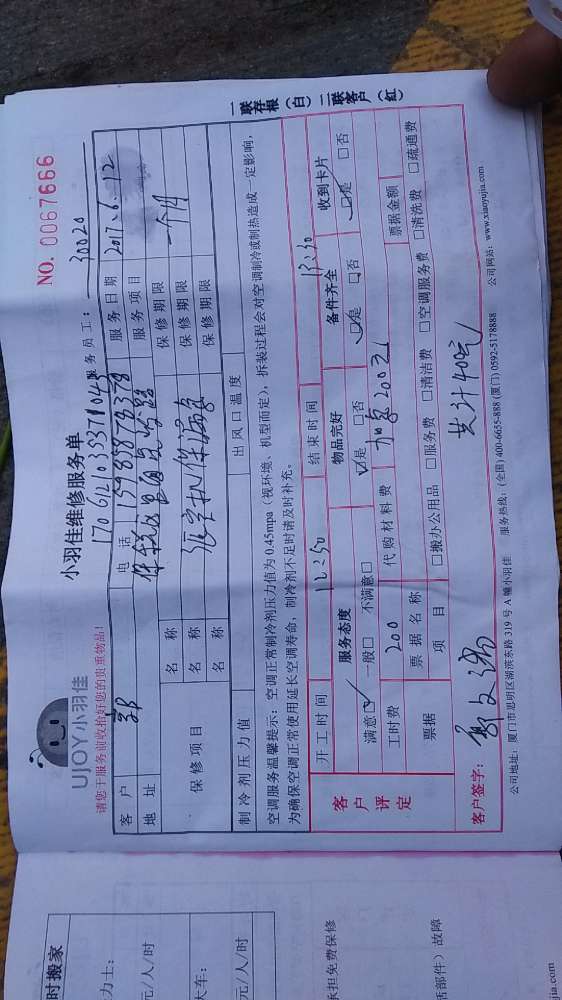 小羽佳维修服务单
NO. 0067666
UJOY小羽佳
请您于服务前收拾好您的贵重物品!
服务员工: 30020
客户 电话 服务日期 2017.6.12
地址 服务项目
保修项目 名称 保修期限 一个月
名称 保修期限
名称 保修期限
制冷剂压力值 出风口温度
空调服务温馨提示:空调正常制冷剂压力值为 0.45mpa(视环境、机型而定),拆装过程会对空调制冷或制热造成一定影响,
为确保空调正常使用延长空调寿命,制冷剂不足时请及时补充。
客户评定
开工时间 12:50 结束时间 13:50
服务态度 物品完好 备件齐全 收到卡片
满意☑ 一般□ 不满意□ ☑是 □否 ☑是 □否 ☑是 □否
工时费 200 代购材料费 加氟200元
票据 票据名称 票据金额
项目 □搬办公用品 □服务费 □清洁费 □空调服务费 □清洗费 □疏通费
客户签字: 共计400元
公司地址:厦门市思明区湖滨东路 319 号 A 幢小羽佳 服务热线:(全国) 400-6655-888 (厦门) 0592-5178888 公司网站:www.xiaoyujia.com
一联存根(白)二联客户(红)
时搬家
力士:
元/人/时
大车:
元/人/时
承担免费保修
括部件)故障
jia.com